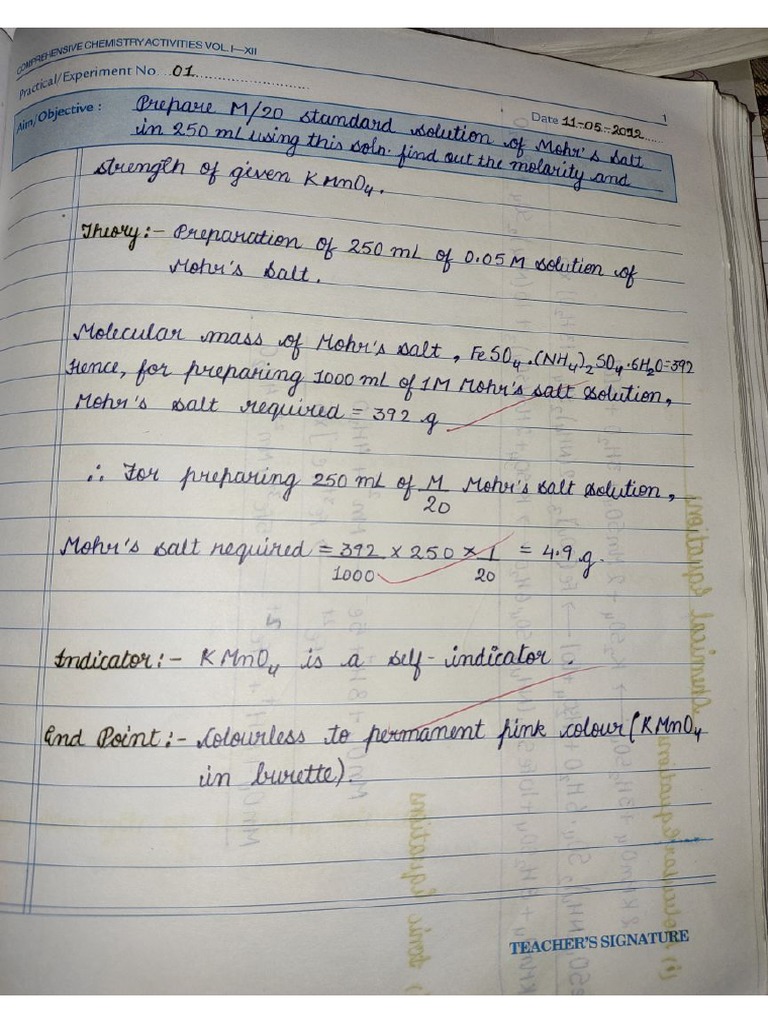 COMPREHENSIVE CHEMISTRY ACTIVITIES VOL. I—XII
Practical/Experiment No. 01
1
Date 11-05-2022
Aim/Objective : Prepare M/20 standard solution of Mohr's salt
in 250 ml using this soln. find out the molarity and
strength of given KMnO₄.
Theory:- Preparation of 250 mL of 0.05 M solution of
Mohr's Salt.
Molecular mass of Mohr's salt, FeSO₄.(NH₄)₂SO₄.6H₂O=392
Hence, for preparing 1000 ml of 1M Mohr's salt solution,
Mohr's salt required = 392 g
∴ For preparing 250 mL of M/20 Mohr's salt solution,
Mohr's salt required = 392/1000 x 250 x 1/20 = 4.9 g.
Indicator:- KMnO₄ is a self-indicator.
End Point:- Colourless to permanent pink colour (KMnO₄
in burette).
TEACHER'S SIGNATURE